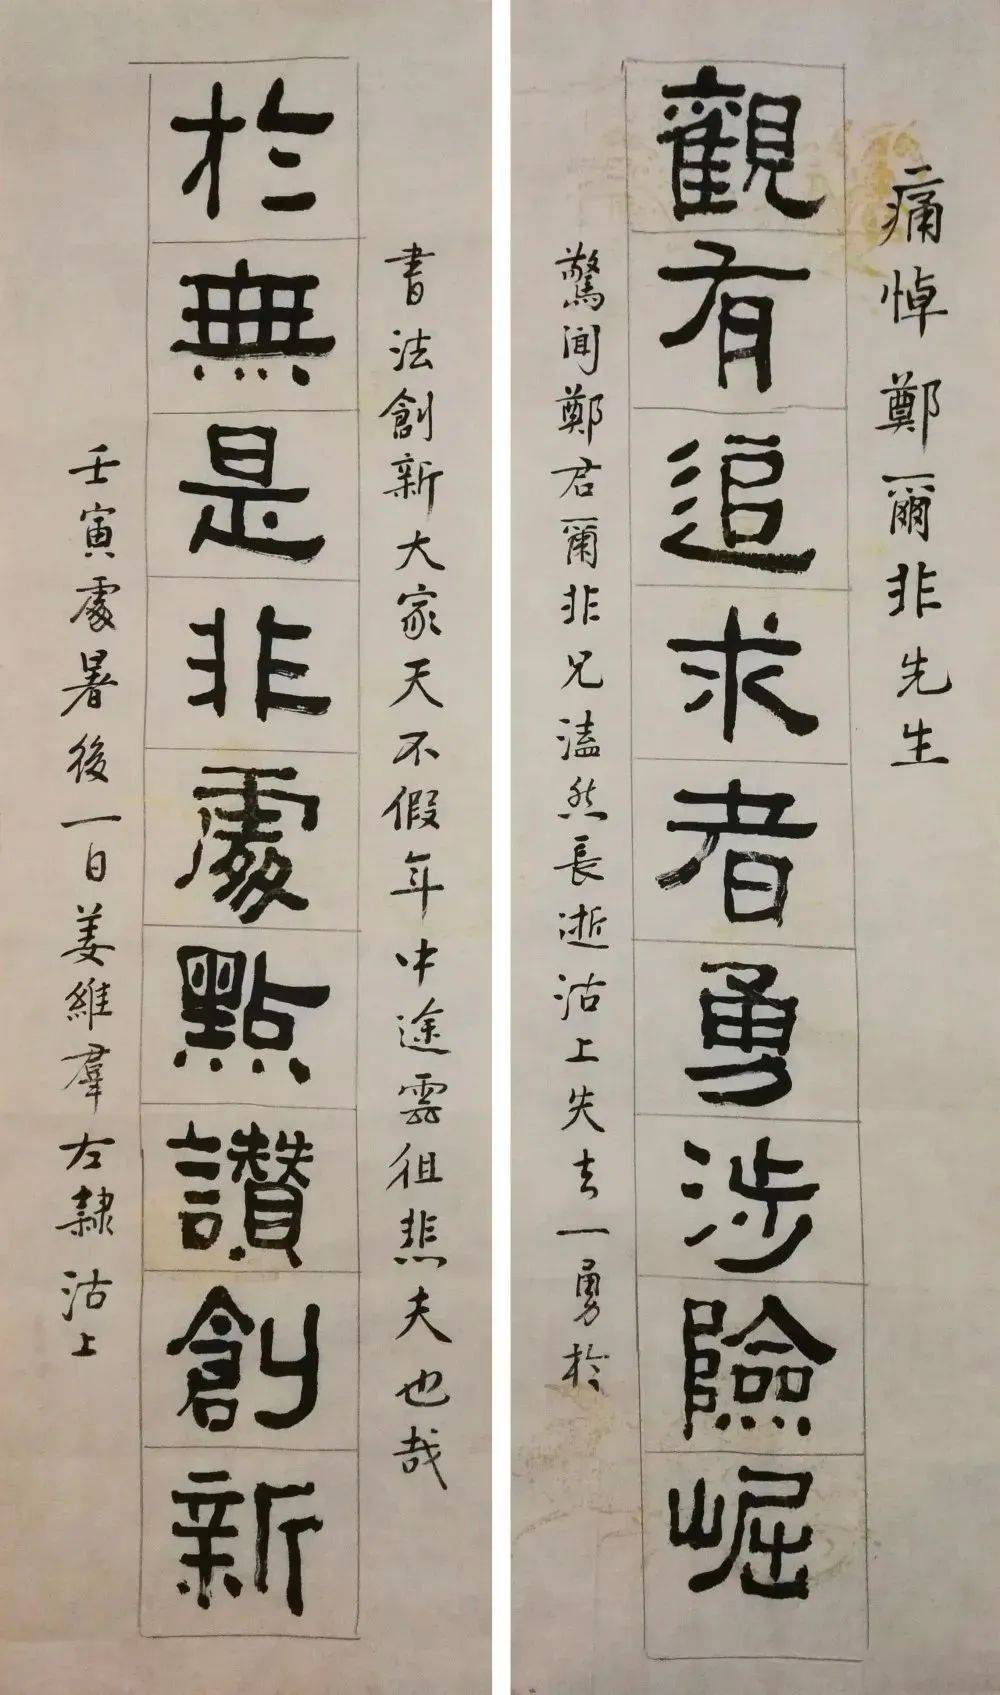 痛悼鄭爾非先生
觀有追求者勇涉險崛
驚聞鄭君爾非兄溘然長逝沽上失去一勇於
書法創新大家天不假年中途雲徂悲夫也哉
於無是非處點讚創新
壬寅處暑後一日姜維羣左隸沽上